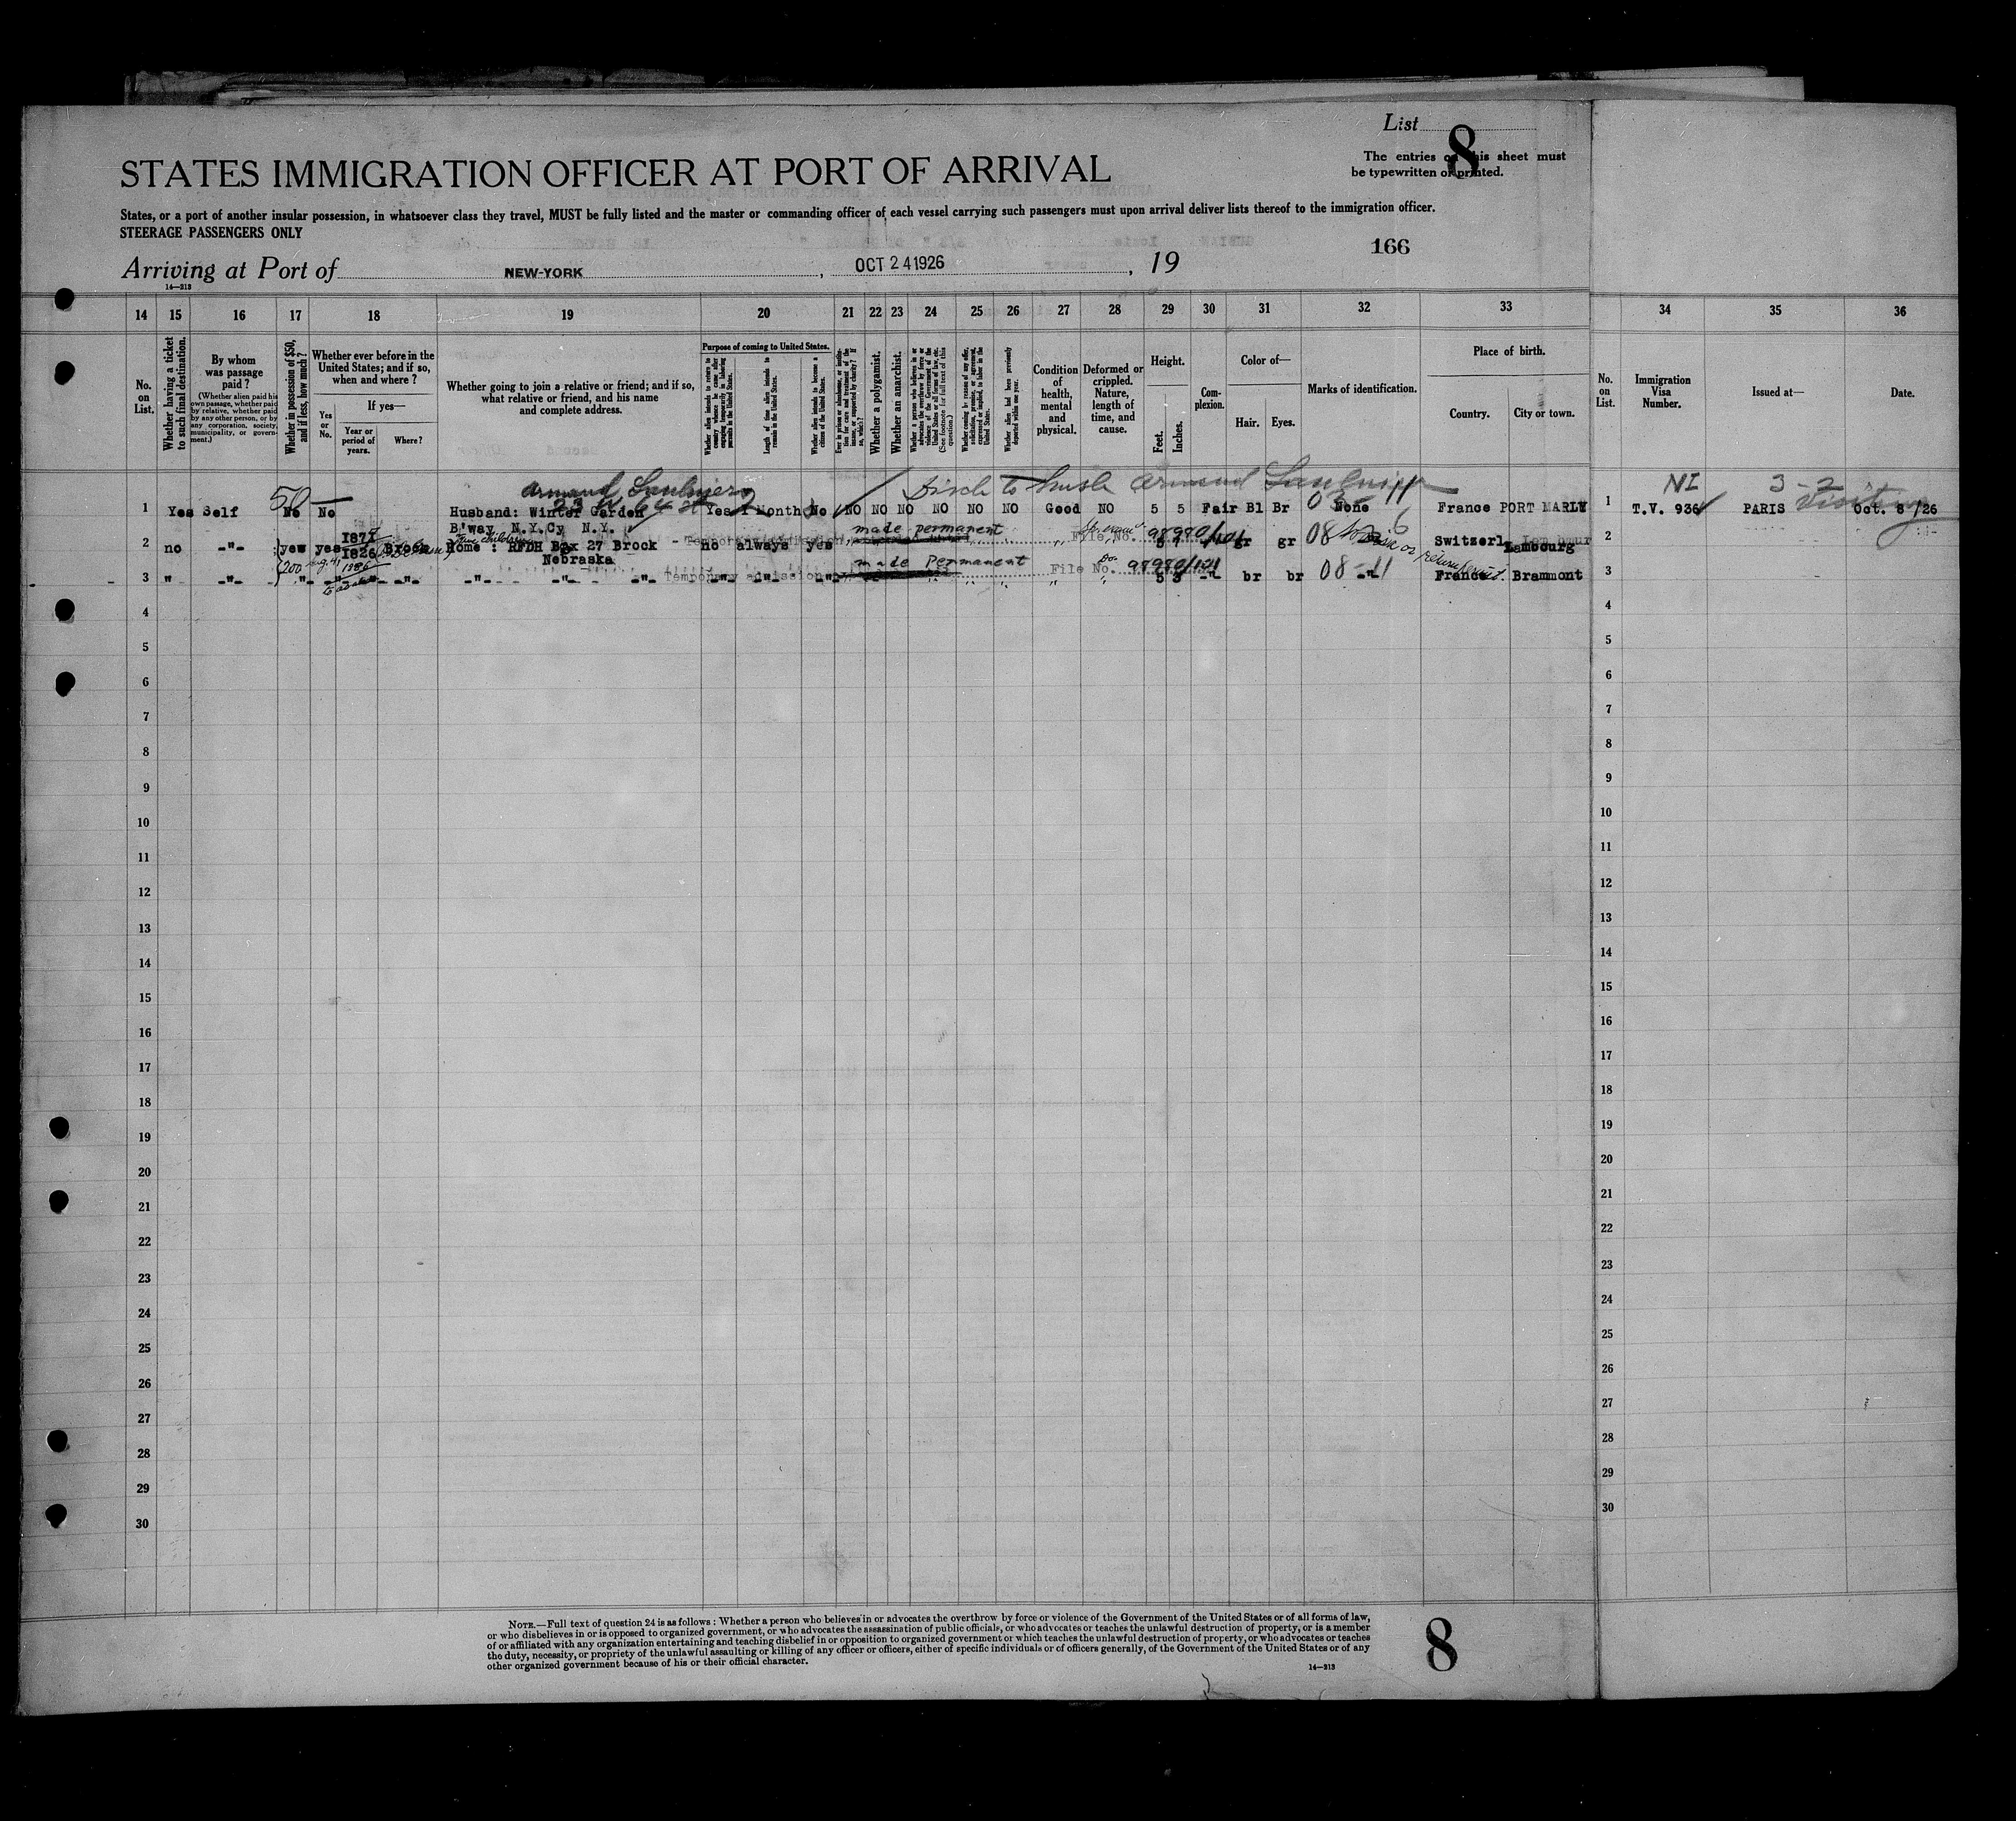 List 8
STATES IMMIGRATION OFFICER AT PORT OF ARRIVAL
The entries on this sheet must
be typewritten or printed.
States, or a port of another insular possession, in whatsoever class they travel, MUST be fully listed and the master or commanding officer of each vessel carrying such passengers must upon arrival deliver lists thereof to the immigration officer.
STEERAGE PASSENGERS ONLY
166
Arriving at Port of NEW-YORK, OCT 24 1926, 19
14—213
14 15 16 17 18 19 20 21 22 23 24 25 26 27 28 29 30 31 32 33 34 35 36
No. on List.
Whether having a ticket to such final destination.
By whom was passage paid?
(Whether alien paid his own passage, whether paid by relative, whether paid by any other person, or by any corporation, society, municipality, or government.)
Whether in possession of $50, and if less, how much?
Whether ever before in the United States; and if so, when and where?
If yes—
Yes or No.
Year or period of years.
Where?
Whether going to join a relative or friend; and if so, what relative or friend, and his name and complete address.
Purpose of coming to United States.
Whether alien intends to return to country whence he came after engaging temporarily in laboring pursuits in the United States.
Length of time alien intends to remain in the United States.
Whether alien intends to become a citizen of the United States.
Ever in prison or almshouse, or institution for care and treatment of the insane, or supported by charity? If so, which?
Whether a polygamist.
Whether an anarchist.
Whether a person who believes in or advocates the overthrow by force or violence of the Government of the United States or all forms of law, etc. (See footnote for full text of this question.)
Whether coming by reason of any offer, solicitation, promise, or agreement, expressed or implied, to labor in the United States.
Whether alien had been previously deported within one year.
Condition of health, mental and physical.
Deformed or crippled. Nature, length of time, and cause.
Height.
Feet. Inches.
Complexion.
Color of—
Hair. Eyes.
Marks of identification.
Place of birth.
Country. City or town.
No. on List.
Immigration Visa Number.
Issued at—
Date.
Armand Saulnier
Disch to husb Armand Saulnier
NI 3-2 Visiting
1 Yes Self 50 No No Husband: Winter Garden Yes 1 Month No NO NO NO NO NO NO Good NO 5 5 Fair Bl Br None France PORT MARLY 1 T.V. 936 PARIS Oct. 8/26
B'way N.Y.Cy N.Y.
made permanent
2 no -"- yes yes 1871 1926 Brook Home : RFDH Box 27 Brook - no always yes File No. 98980/101 gr gr 08 Switzerl. Lambourg 2
Nebraska
200 1926
made permanent
3 " -"- " -"- -"- -"- -"- -"- -"- Temporary admission File No. 98980/101 5 3 -"- br br 08-11 -"- France Brammont 3
4 4
5 5
6 6
7 7
8 8
9 9
10 10
11 11
12 12
13 13
14 14
15 15
16 16
17 17
18 18
19 19
20 20
21 21
22 22
23 23
24 24
25 25
26 26
27 27
28 28
29 29
30 30
NOTE.—Full text of question 24 is as follows: Whether a person who believes in or advocates the overthrow by force or violence of the Government of the United States or of all forms of law,
or who disbelieves in or is opposed to organized government, or who advocates the assassination of public officials, or who advocates or teaches the unlawful destruction of property, or is a member
of or affiliated with any organization entertaining and teaching disbelief in or opposition to organized government or which teaches the unlawful destruction of property, or who advocates or teaches
the duty, necessity, or propriety of the unlawful assaulting or killing of any officer or officers, either of specific individuals or of officers generally, of the Government of the United States or of any
other organized government because of his or their official character.
14—213
8